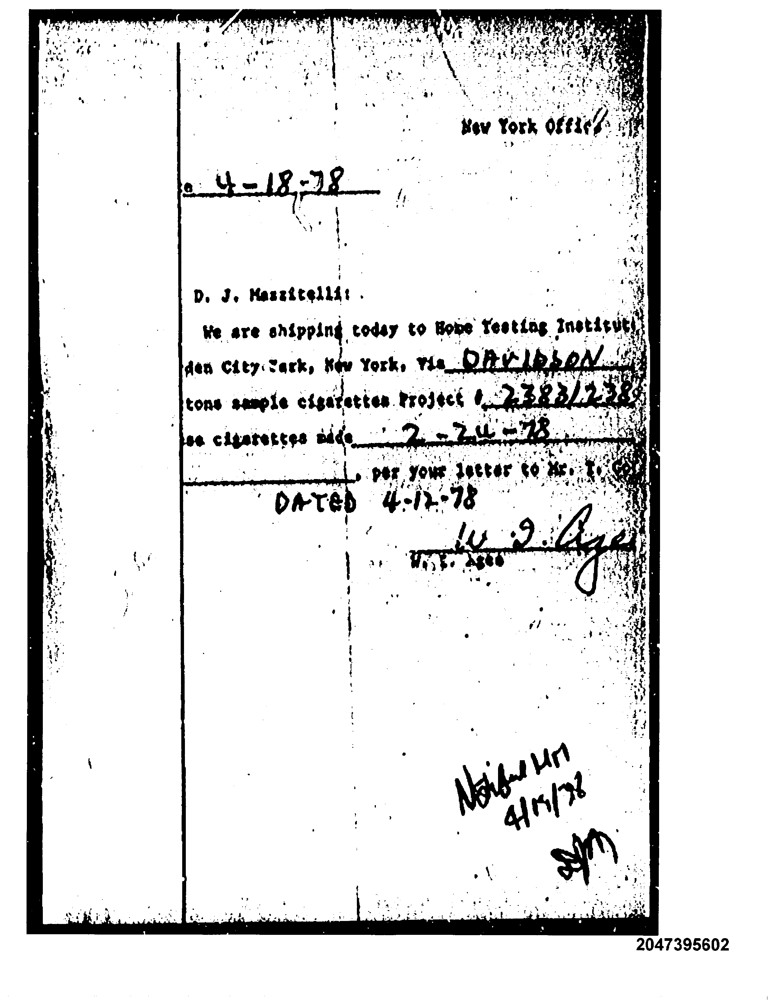 New York Office
e 4-18-78
D. J. Mazzitelli:
We are shipping today to Home Testing Institut
den City Park, New York, Via DAVIDSON
tons sample cigarettes Project # 2383/238
se cigarettes made 2-24-78
, per your letter to Mr. T.
DATED 4-12-78
W. I. Agee
W. I. Agee
4/19/78
2047395602